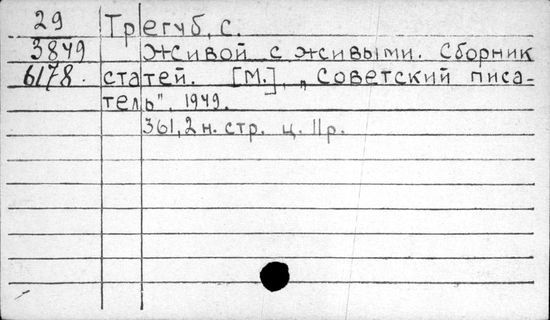 29 Трегуб, С.
3849 Живой с живыми. Сборник
6178. статей. [М.], „Советский писа-
тель". 1949.
361, 2 н. стр. ц. 11 р.